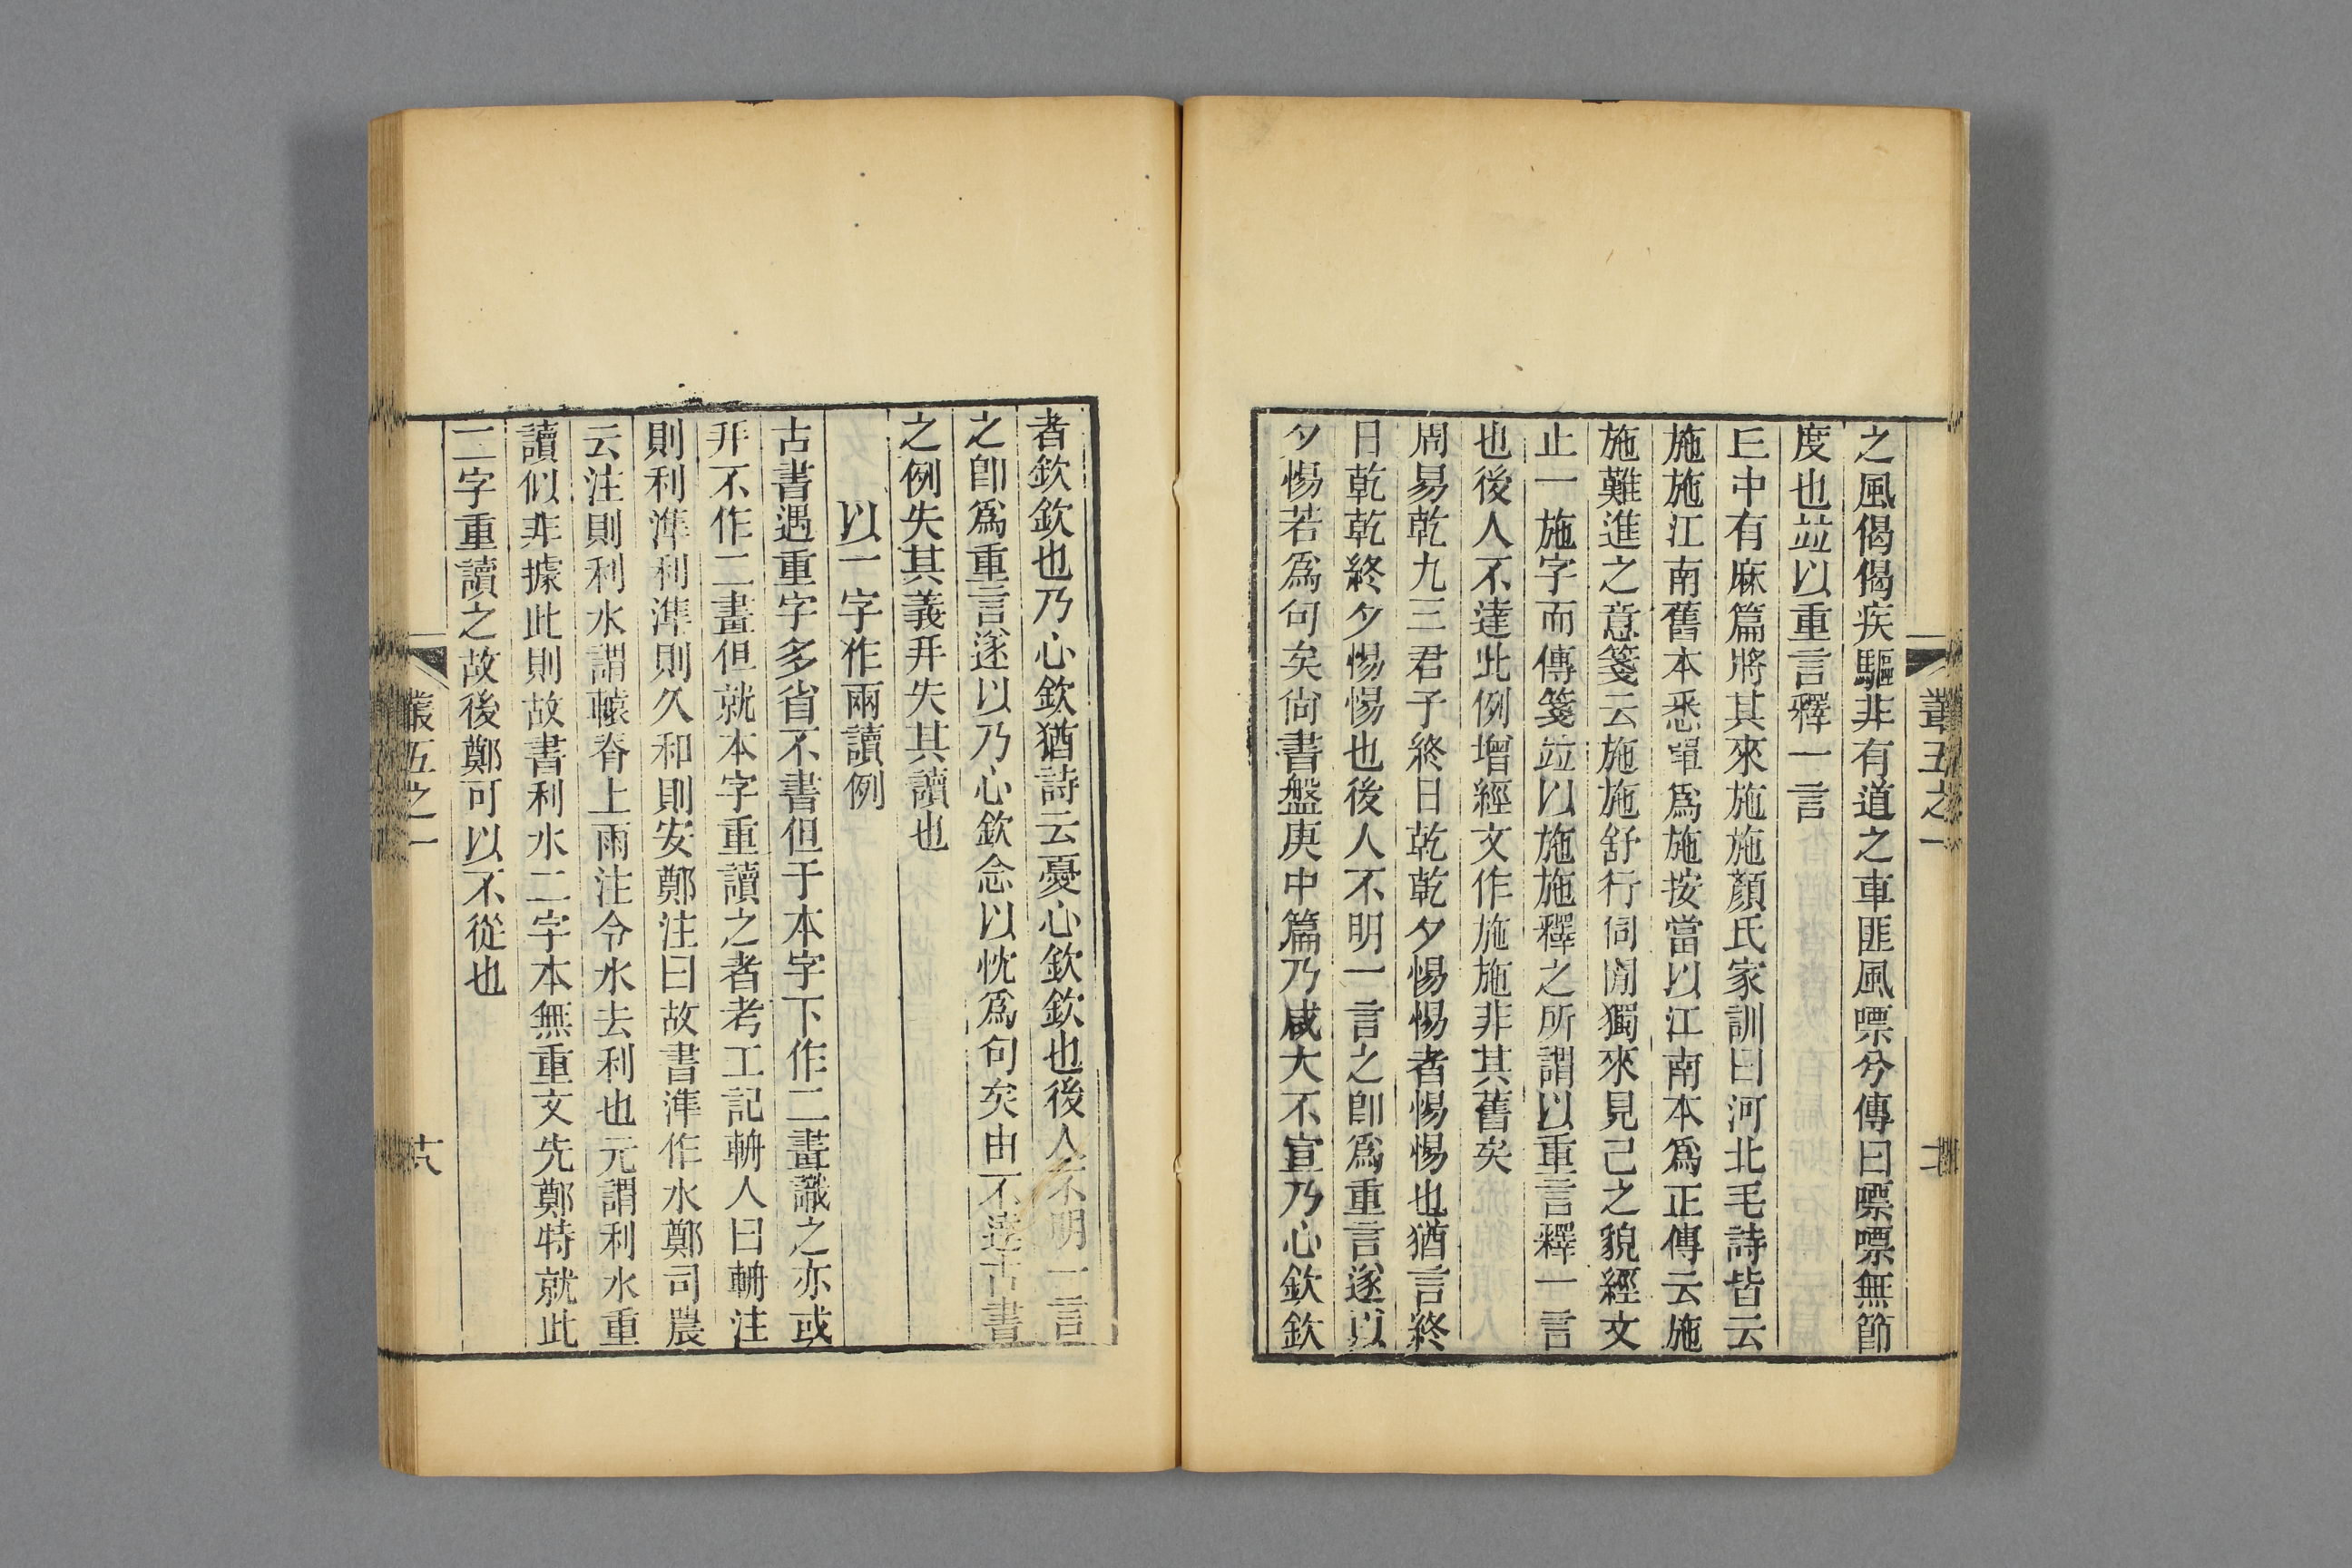 叢五之一
之風偈偈疾驅非有道之車匪風嘌兮傳曰嘌嘌無節
度也竝以重言釋一言
丘中有麻篇將其來施施顏氏家訓曰河北毛詩皆云
施施江南舊本悉單爲施按當以江南本爲正傳云施
施難進之意箋云施施舒行伺閒獨來見己之貌經文
止一施字而傳箋竝以施施釋之所謂以重言釋一言
也後人不達此例增經文作施施非其舊矣
周易乾九三君子終日乾乾夕惕惕者惕惕也猶言終
日乾乾終夕惕惕也後人不明一言之卽爲重言遂以
夕惕若爲句矣尙書盤庚中篇乃咸大不宣乃心欽欽
者欽欽也乃心欽猶詩云憂心欽欽也後人不明一言
之卽爲重言遂以乃心欽念以忱爲句矣由不達古書
之例失其義并失其讀也
以一字作兩讀例
古書遇重字多省不書但于本字下作二畫識之亦或
并不作二畫但就本字重讀之者考工記輈人曰輈注
則利準利準則久和則安鄭注曰故書準作水鄭司農
云注則利水謂轅脊上雨注令水去利也元謂利水重
讀似非據此則故書利水二字本無重文先鄭特就此
二字重讀之故後鄭可以不從也
叢五之一
大